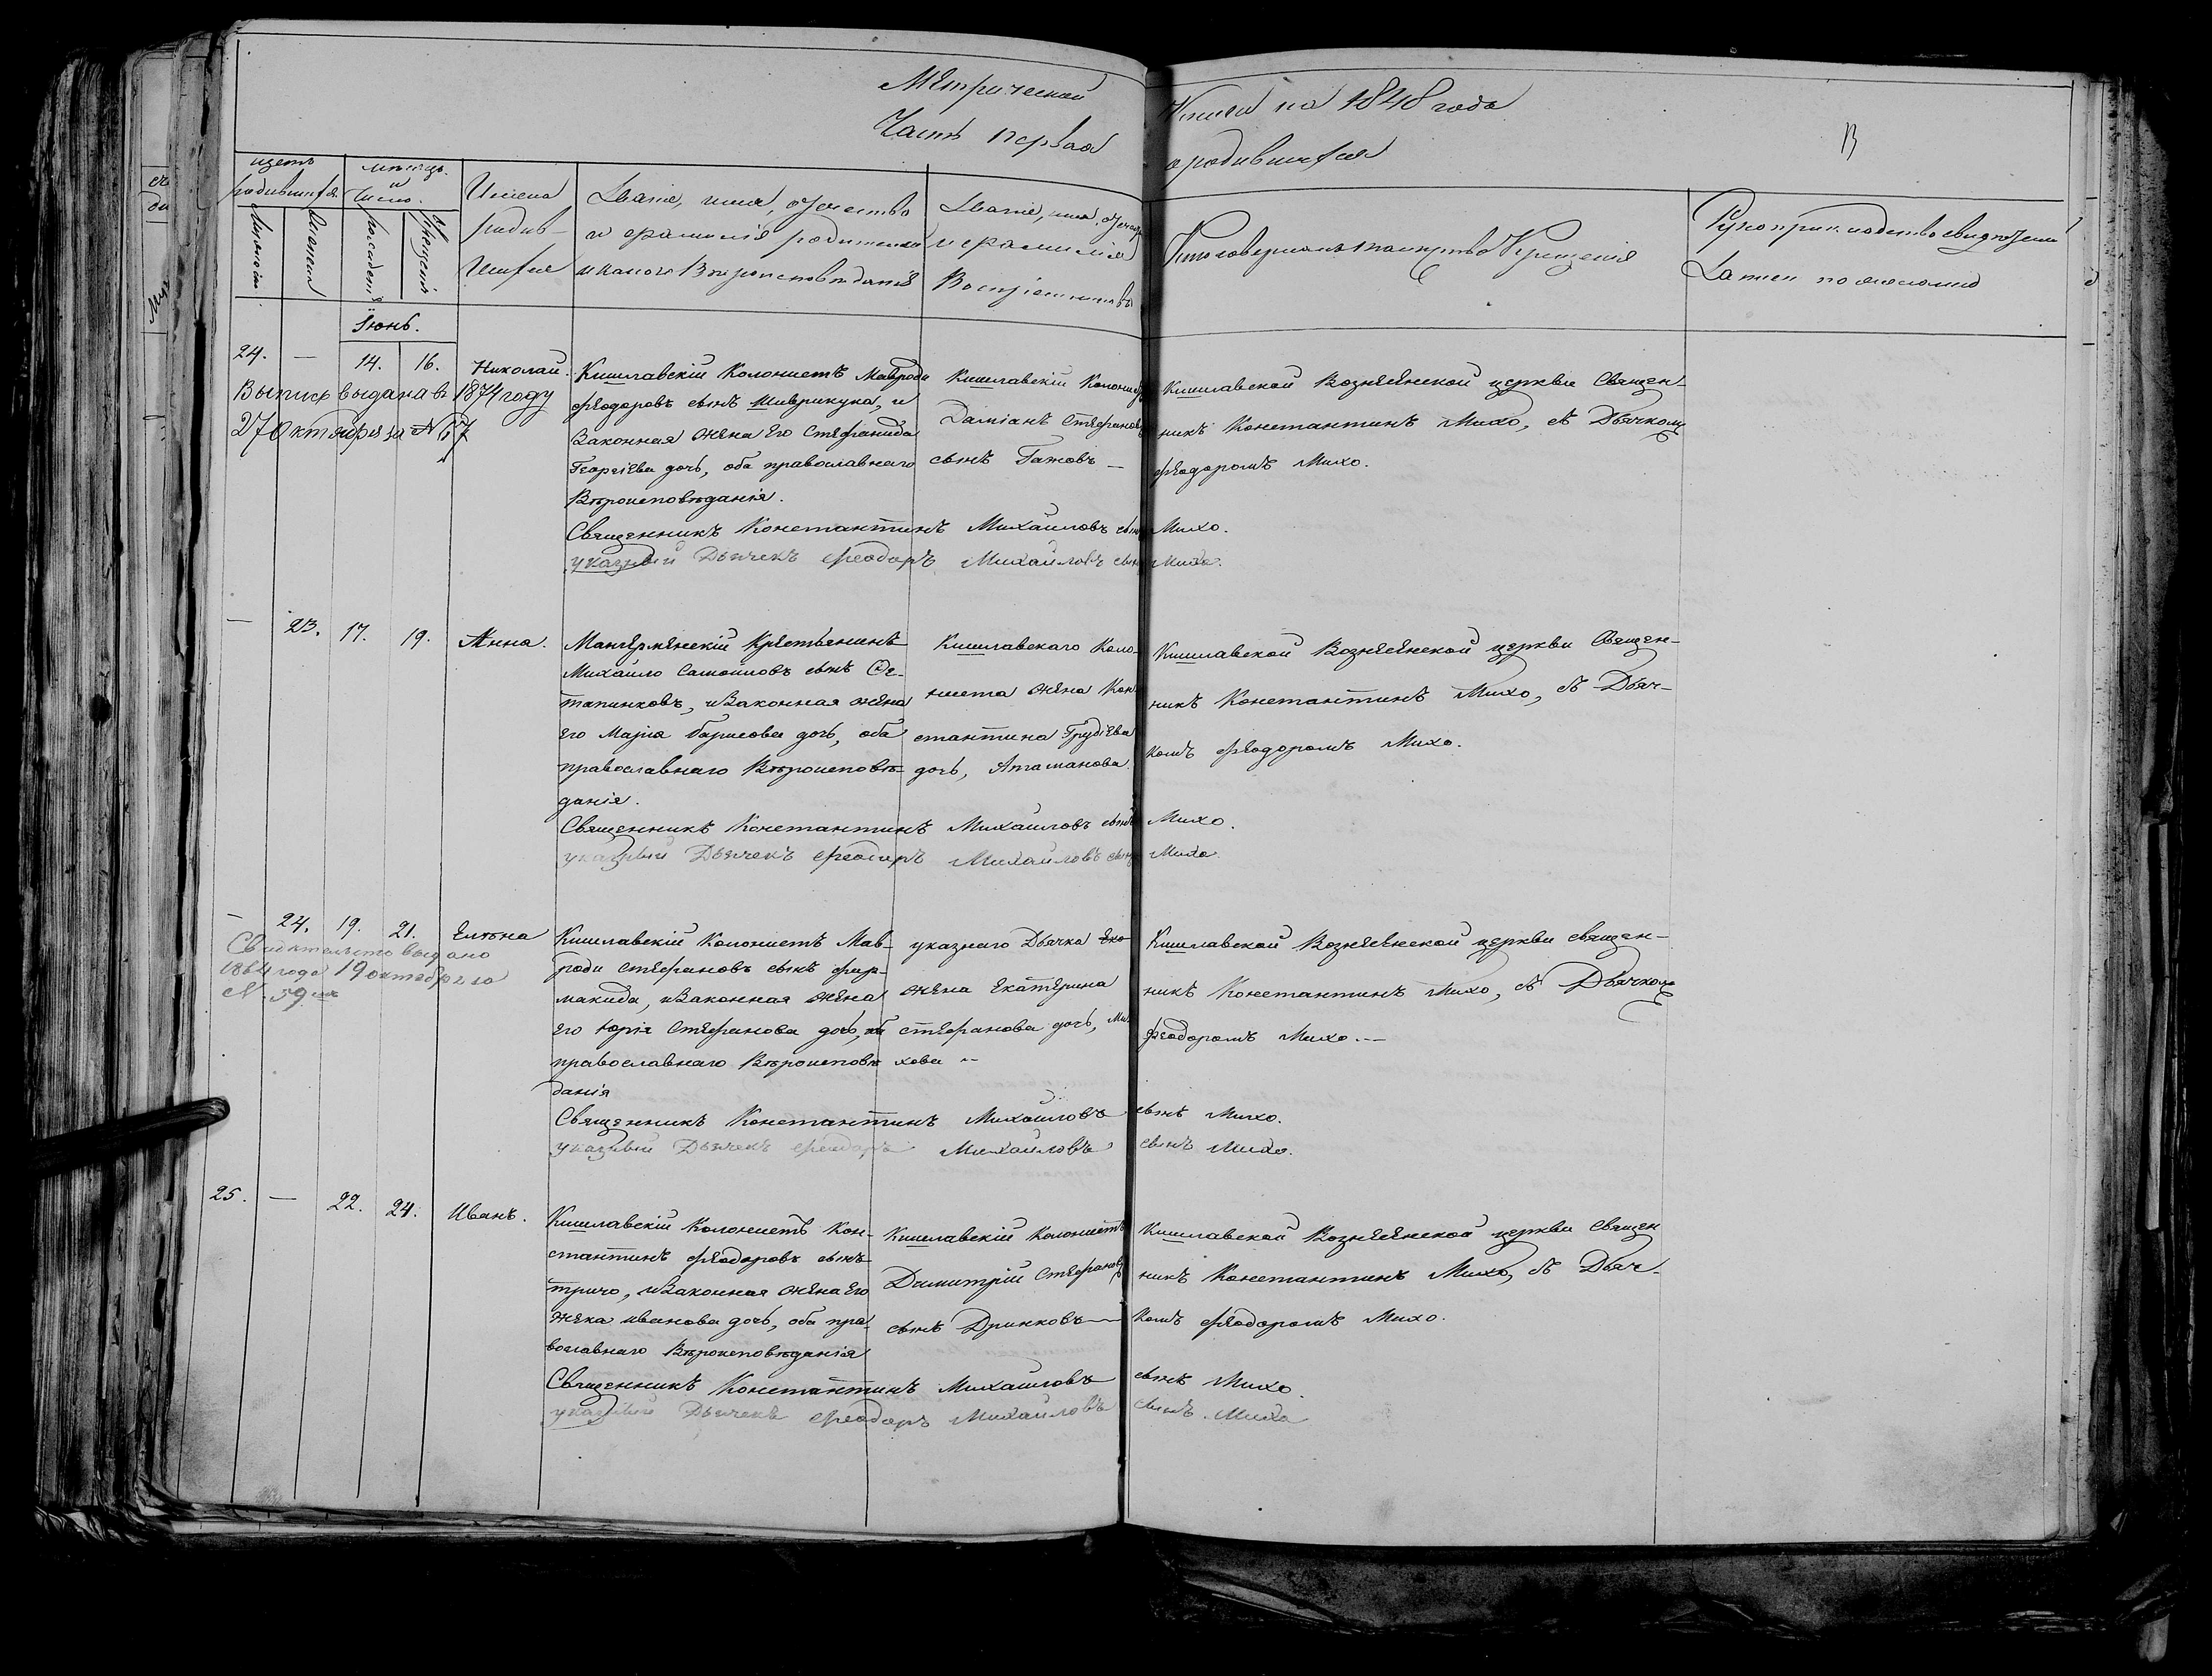 Метрической Книги на 1848 года
Часть первая о родившихся
13
щетъ родившихся
мѣсяцъ и число.
Имена родившихся
Званіе, имя, отчество и фамилія родителей и какого Вѣроисповѣданія
Званіе, имя, отчество и фамилія Воспріемниковъ
Кто совершалъ таинство Крещенія
Рукоприкладство свидѣтелей записи по желанію
Мужеска
Женска
рожденія
Крещенія
Іюнь.
24. — 14. 16. Николай.
Выпись выдана въ 1874 году
27 Октября за № 17
Кишлавскій Колонистъ Мавроди
Феодоровъ сынъ Шиврикука, и
Законная жена Его Стефанида
Георгіева дочь, оба православнаго
Вѣроисповѣданія.
Кишлавскій Колонистъ
Даміанъ Стефановъ
сынъ Гажовъ —
Кишлавской Вознесенской церкви Священ-
никъ Константинъ Михо, съ Дьячкомъ
Феодоромъ Михо.
Священникъ Константинъ Михайловъ сынъ Михо.
указный Дьячекъ Феодоръ Михайловъ сынъ Михо.
— 23. 17. 19. Анна.
Мангерменскій Крестьянинъ
Михайло Самойловъ сынъ Ос-
тапинковъ, и Законная жена
его Марія Борисова дочь, оба
православнаго Вѣроисповѣ-
данія.
Кишлавскаго Коло-
ниста жена Кон-
стантина Грудіева
дочь, Атаманова.
Кишлавской Вознесенской церкви Священ-
никъ Константинъ Михо, съ Дьяч-
комъ Феодоромъ Михо.
Священникъ Константинъ Михайловъ сынъ Михо.
указный Дьячекъ Феодоръ Михайловъ сынъ Михо.
— 24. 19. 21. Елѣна
Свидѣтельство выдано
1864 года 19 октября за
№ 59
Кишлавскій Колонистъ Мав-
роди Стефановъ сынъ Фур-
макида, и Законная жена
его Юрія Стефанова дочь, оба
православнаго Вѣроисповѣ
данія
указнаго Дьячка
жена Екатерина
Стефанова дочь, Ми-
хова —
Кишлавской Вознесенской церкви священ-
никъ Константинъ Михо, съ Дьячкомъ
Феодоромъ Михо. —
Священникъ Константинъ Михайловъ сынъ Михо.
указный Дьячекъ Феодоръ Михайловъ сынъ Михо.
25. — 22. 24. Иванъ.
Кишлавскій Колонистъ Кон-
стантинъ Феодоровъ сынъ
тричо, и Законная жена Его
Жека иванова дочь, оба пра-
вославнаго Вѣроисповѣданія
Кишлавскій Колонистъ
Димитрій Стефановъ
сынъ Дринковъ —
Кишлавской Вознесенской церкви Священ
никъ Константинъ Михо, съ Дьяч-
комъ Феодоромъ Михо.
Священникъ Константинъ Михайловъ сынъ Михо.
указный Дьячекъ Феодоръ Михайловъ сынъ Михо